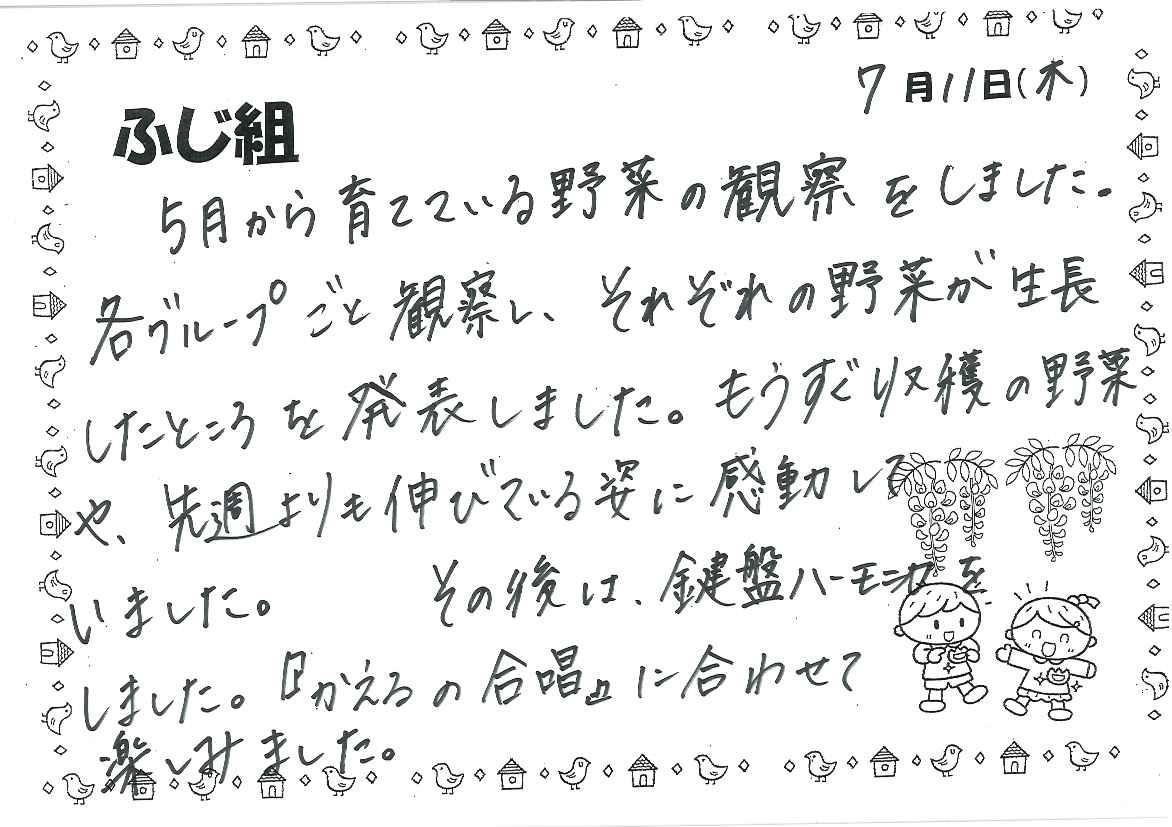 7月11日(木)
ふじ組
5月から育てている野菜の観察をしました。
各グループごと観察し、それぞれの野菜が生長
したところを発表しました。もうすぐ収穫の野菜
や、先週よりも伸びている姿に感動して
いました。 その後は、鍵盤ハーモニカを
しました。『かえるの合唱』に合わせて
楽しみました。